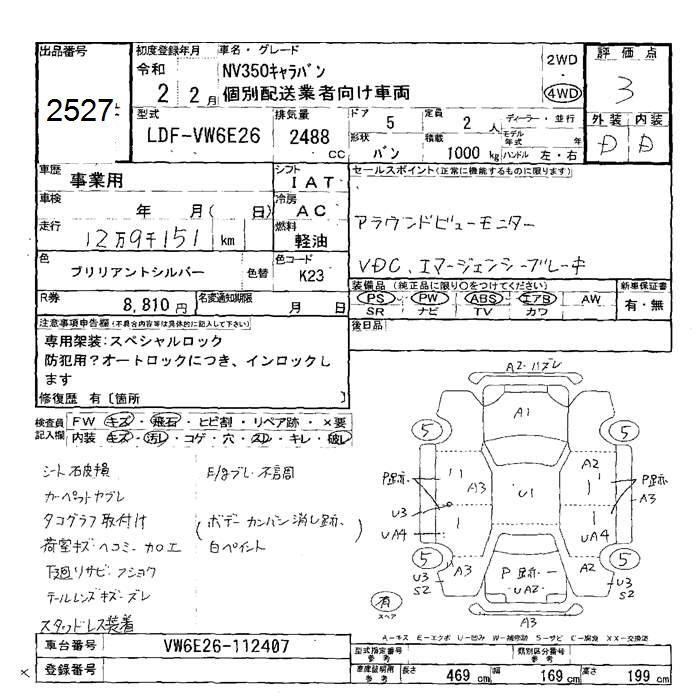 出品番号
2527
初度登録年月
令和
2 2 月
車名・グレード
NV350キャラバン
個別配送業者向け車両
2WD
・
4WD
評価点
3
外装 内装
D D
型式
LDF-VW6E26
排気量
2488
CC
ドア
5
定員
2 人
ディーラー・並行
モデル年式 年
形状
バン
積載
1000 kg
ハンドル 左・右
車歴
事業用
シフト
IAT
セールスポイント(正常に機能するものに限ります)
アラウンドビューモニター
VDC、エマージェンシーブレーキ
車検
年 月( 日)
冷房
AC
走行
12万9千151 km
燃料
軽油
色
ブリリアントシルバー
色替
色コード
K23
装備品 (純正品に限り○をつけてください)
PS・PW・ABS・エアB・AW
SR ナビ TV カワ
新車保証書
有・無
R券
8,810 円
名変通知期限
月 日
後日品
注意事項申告欄(不具合内容等は具体的に記入して下さい)
専用架装:スペシャルロック
防犯用?オートロックにつき、インロックし
ます
修復歴 有〔箇所 〕
検査員記入欄
FW キズ・飛石・ヒビ割・リペア跡・×要
内装 キズ・汚し・コゲ・穴・スレ・キレ・破レ
シート破損
カーペットカブレ
タコグラフ取付け
荷室キズ・ヘコミ・カロエ
下廻リサビ・フショク
テールレンズキズ・ズレ
スタッドレス装着
E/gブレ・不言周
(ボデーカンバン消し跡・)
白ペイント
A2・ハズレ
A1
5
5
A2
P跡
A3
U1
P跡
A3
U3
UA4
UA4
5
5
A3
A2
U3
S2
U3
S2
P跡
UA2
A3
有
スペア
A-キズ E-エクボ U-凹み W-補修跡 S-サビ C-腐食 XX-交換済
車台番号
VW6E26-112407
型式指定番号
参考
類別区分番号
参考
×
登録番号
車庫証明用
参考
長さ 469 cm
幅 169 cm
高さ 199 cm